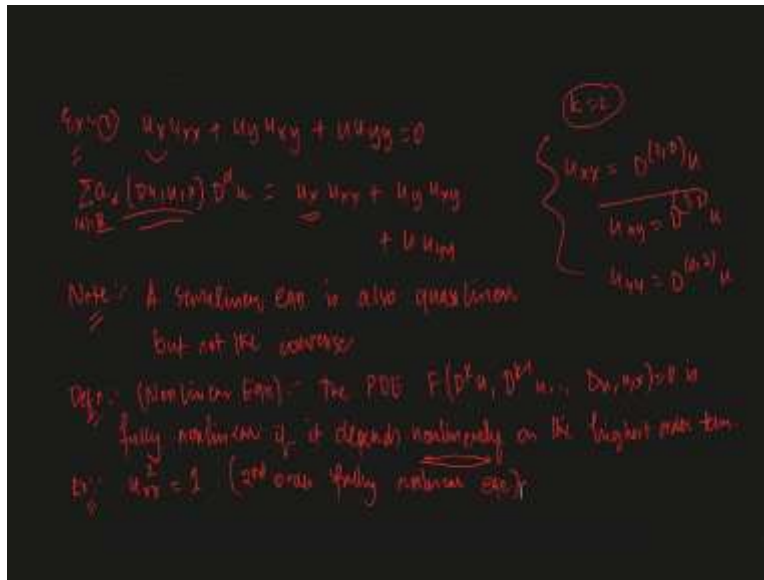 Ex:- ① u_x u_xx + u_y u_xy + u u_yy = 0
k=2
Σ_{|α|=2} a_α (Du, u, x) D^α u = u_x u_xx + u_y u_xy
+ u u_yy
u_xx = D^(2,0) u
u_xy = D^(1,1) u
u_yy = D^(0,2) u
Note:- A semilinear eqn is also quasilinear
but not the converse
Defn:- (Nonlinear Eqn):- The PDE F(D^k u, D^{k-1} u, .., Du, u, x)=0 is
fully nonlinear if it depends nonlinearly on the highest order term.
Ex:- u_xx^2 = 1 (2nd order fully nonlinear eqn)